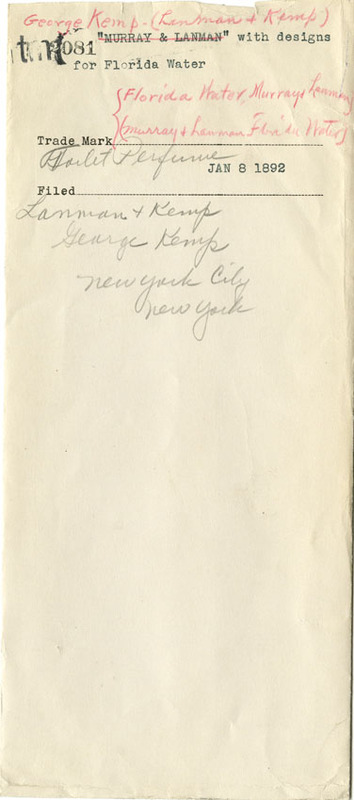 George Kemp - (Lanman & Kemp)
tmk 2081 "MURRAY & LANMAN" with designs
for Florida Water
{Florida Water, Murray & Lanman
(Murray & Lanman Florida Water)
Trade Mark
Toilet Perfume
JAN 8 1892
Filed
Lanman & Kemp
George Kemp
New York City
New York